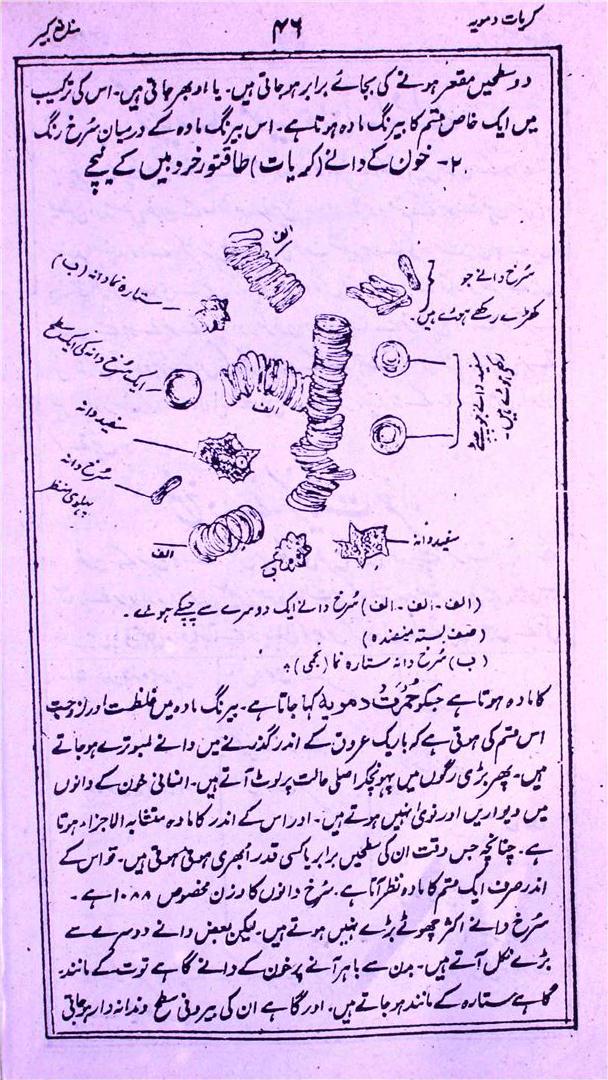 کریات دمویہ
۴۶
منافع کبیر
دو سطحیں مقعر ہونے کی بجائے برابر ہو جاتی ہیں۔ یا ابھر جاتی ہیں۔ اس کی ترکیب
میں ایک خاص قسم کا بیرنگ مادہ ہوتا ہے۔ اس بیرنگ مادہ کے درمیان سُرخ رنگ
۲۔ خون کے دانے (کریات) طاقتور خردبیں کے نیچے
الف
سُرخ دانے جو
کھڑے رکھے ہوئے ہیں۔
ستارہ نما دانہ (ب)
ایک سُرخ دانہ کی ایک سطح
سفید دانے جو چپٹے
رکھے ہوئے ہیں۔
الف
سفید دانہ
سُرخ دانہ
پہلوی منظر
الف
ب
سفید دانہ
(الف۔ الف۔ الف) سُرخ دانے ایک دوسرے سے چپکے ہوئے۔
(صف بستہ منضدہ)
(ب) سُرخ دانہ ستارہ نما (نجمی)
کا مادہ ہوتا ہے جسکو حُمرَتُ دمویہ کہا جاتا ہے۔ بیرنگ مادہ میں غلظت اور لزوجت
اس قسم کی ہوتی ہے کہ باریک عروق کے اندر گذرنے میں دانے لمبوترے ہو جاتے
ہیں۔ پھر بڑی رگوں میں پہونچکر اصلی حالت پر لوٹ آتے ہیں۔ انسانی خون کے دانوں
میں دیواریں اور نویٰ نہیں ہوتے ہیں۔ اور اس کے اندر کا مادہ متشابہ الاجزاء ہوتا
ہے۔ چنانچہ جس وقت ان کی سطحیں برابر یا کسی قدر اُبھری ہوئی ہوتی ہیں۔ تو اس کے
اندر صرف ایک قسم کا مادہ نظر آتا ہے۔ سُرخ دانوں کا وزن مخصوص ۱۰۸۸ ہے۔
سُرخ دانے اکثر چھوٹے بڑے نہیں ہوتے ہیں۔ لیکن بعض دانے دوسرے سے
بڑے نکل آتے ہیں۔ بدن سے باہر آنے پر خون کے دانے گاہے توت کے مانند
گاہے ستارہ کے مانند ہو جاتے ہیں۔ اور گاہے ان کی بیرونی سطح دندانہ دار ہو جاتی